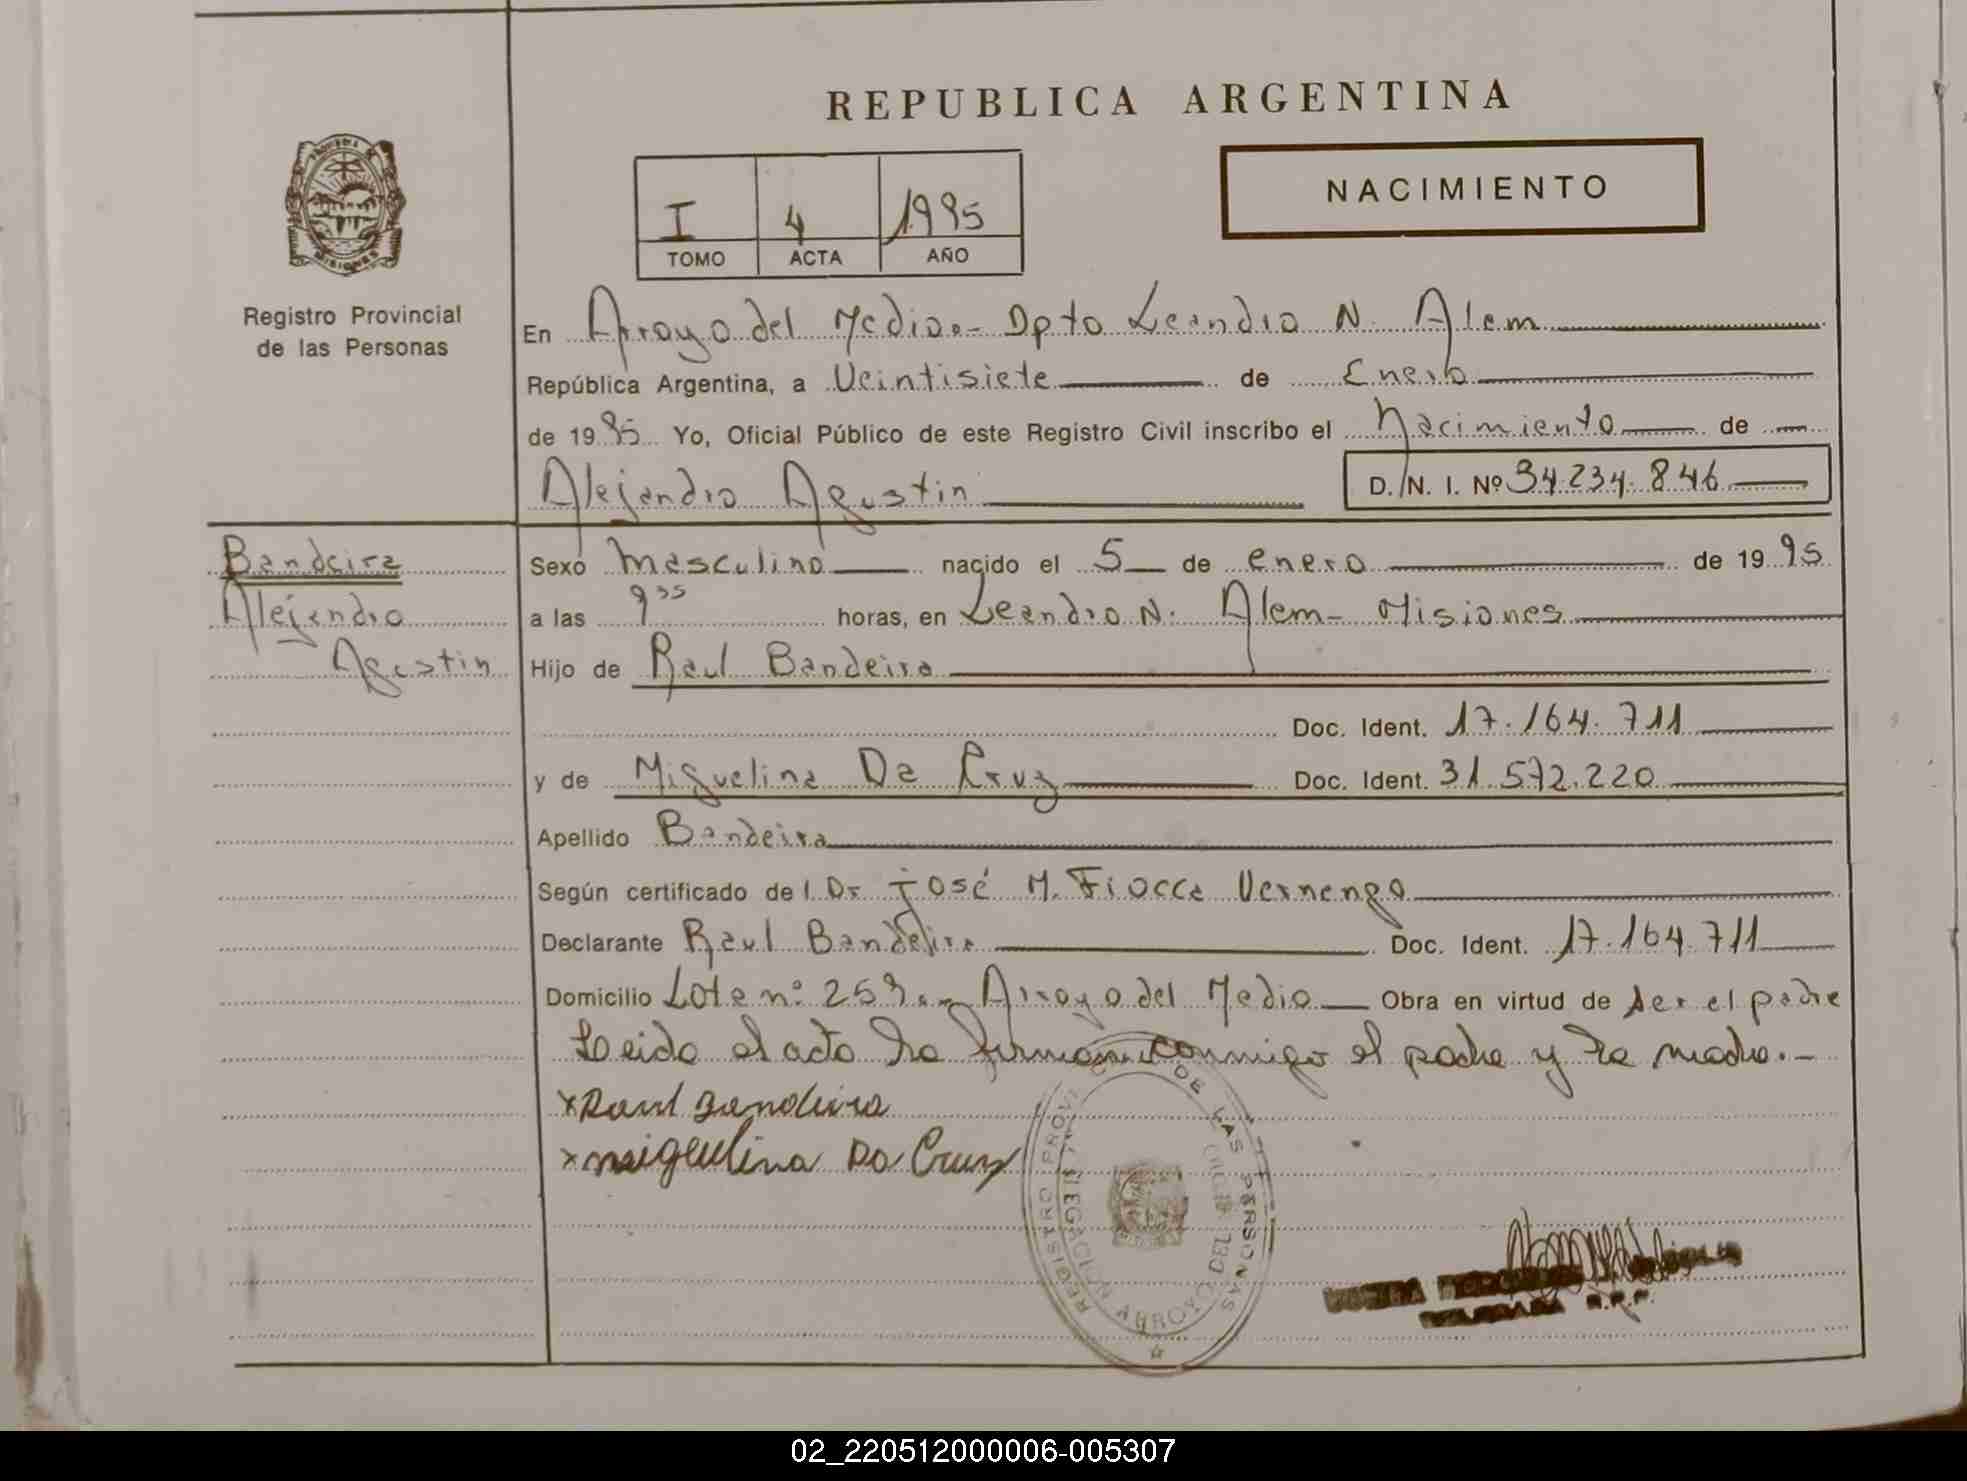 REPUBLICA ARGENTINA
NACIMIENTO
I 4 1995
TOMO ACTA AÑO
PROVINCIA DE
MISIONES
Registro Provincial
de las Personas
En Arroyo del Medio.- Dpto Leandro N. Alem
República Argentina, a Veintisiete de Enero
de 1995 Yo, Oficial Público de este Registro Civil inscribo el Nacimiento de
Alejandro Agustin D. N. I. Nº 34.234.846
Bandeira
Alejandro
Agustin
Sexo Masculino nacido el 5 de enero de 1995
a las 9 35 horas, en Leandro N. Alem - Misiones
Hijo de Raul Bandeira
Doc. Ident. 17.164.711
y de Miguelina Da Cruz Doc. Ident. 31.572.220
Apellido Bandeira
Según certificado de l Dr. José M. Fiocca Vernengo
Declarante Raul Bandeira Doc. Ident. 17.164.711
Domicilio Lote nº 259.- Arroyo del Medio Obra en virtud de ser el padre
Leido el acta la firman conmigo el padre y la madre.-
x Raul Bandeira
x migeulina Da Cruz
REGISTRO PROVINCIAL DE LAS PERSONAS
DELEGACION ARROYO DEL MEDIO
DELEGADA R.P.P.
02_220512000006-005307